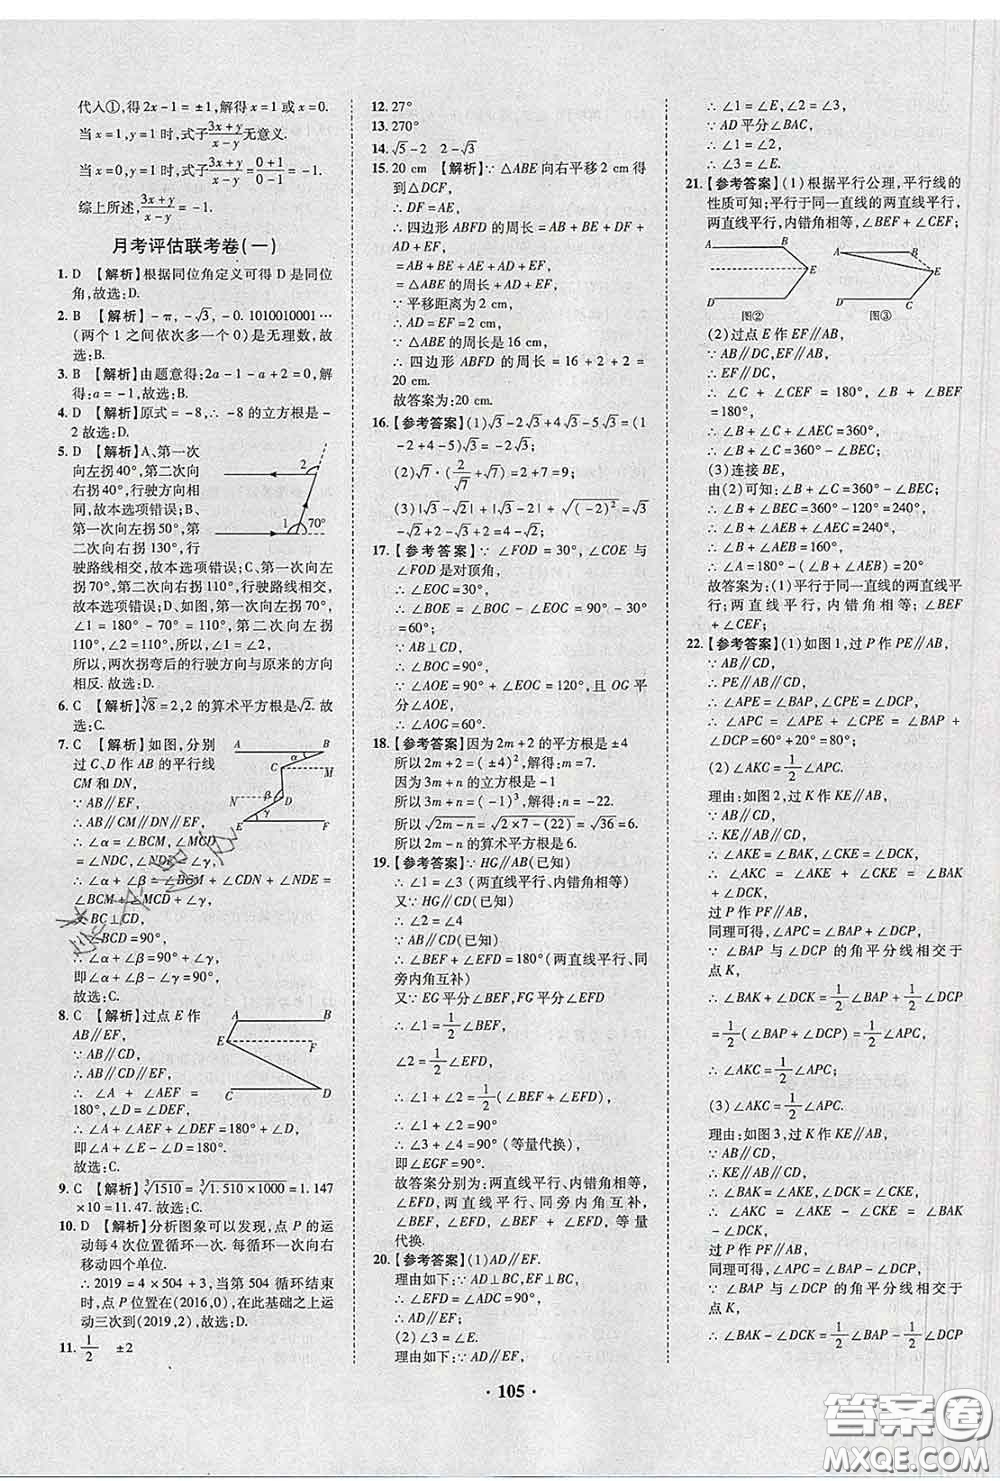 代入①,得2x-1=±1,解得x=1或x=0.
当x=1,y=1时,式子(3x+y)/(x-y)无意义.
当x=0,y=1时,式子(3x+y)/(x-y)=(0+1)/(0-1)=-1.
综上所述,(3x+y)/(x-y)=-1.
月考评估联考卷(一)
1. D 【解析】根据同位角定义可得D是同位
角,故选:D.
2. B 【解析】-π,-√3,-0.1010010001…
(两个1之间依次多一个0)是无理数,故
选:B.
3. B 【解析】由题意得:2a-1-a+2=0,解
得:a=-1,故选:B.
4. D 【解析】原式=-8,∴-8的立方根是-
2故选:D.
5. D 【解析】A、第一次
向左拐40°,第二次向
右拐40°,行驶方向相
同,故本选项错误;B、
第一次向左拐50°,第
二次向右拐130°,行
驶路线相交,故本选项错误;C、第一次向左
拐70°,第二次向右拐110°,行驶路线相交,
故本选项错误;D、如图,第一次向左拐110°,
∠1=180°-70°=110°,第二次向左拐
110°,∠2=110°,所以,∠1=∠2,
所以,两次拐弯后的行驶方向与原来的方向
相反.故选:D.
2
1
70°
6. C 【解析】∛8=2,2的算术平方根是√2.故
选:C.
7. C 【解析】如图,分别
过C、D作AB的平行线
CM和DN,
∵AB∥EF,
∴AB∥CM∥DN∥EF,
∴∠α=∠BCM,∠MCD
=∠NDC,∠NDE=∠γ,
∴∠α+∠β=∠BCM+∠CDN+∠NDE=
∠BCM+∠MCD+∠γ,
又∵BC⊥CD,
∴∠BCD=90°,
∴∠α+∠β=90°+∠γ,
即∠α+∠β-∠γ=90°,
故选:C.
A
B
α
C
M
N
β
D
E
γ
F
8. C 【解析】过点E作
EF∥AB,
∵AB∥CD,
∴AB∥CD∥EF,
∴∠A+∠AEF=
180°,∠D=∠DEF,
∴∠A+∠AEF+∠DEF=180°+∠D,
即∠A+∠E-∠D=180°.
故选:C.
A
B
E
F
C
D
9. C 【解析】∛1510=∛(1.510×1000)=1.147
×10=11.47.故选:C.
10. D 【解析】分析图象可以发现,点P的运
动每4次位置循环一次.每循环一次向右
移动四个单位.
∴2019=4×504+3,当第504循环结束
时,点P位置在(2016,0),在此基础之上运
动三次到(2019,2),故选:D.
11. 1/2 ±2
12. 27°
13. 270°
14. √5-2 2-√3
15. 20 cm 【解析】∵△ABE向右平移2 cm得
到△DCF,
∴DF=AE,
∴四边形ABFD的周长=AB+BE+DF+
AD+EF
=AB+BE+AE+AD+EF
=△ABE的周长+AD+EF.
∵平移距离为2 cm,
∴AD=EF=2 cm,
∵△ABE的周长是16 cm,
∴四边形ABFD的周长=16+2+2=
20 cm.
故答案为:20 cm.
16. 【参考答案】(1)√3-2√3+4√3-5√3=(1
-2+4-5)√3=-2√3;
(2)√7·(2/√7+√7)=2+7=9;
(3)|√3-√5|+|√3-2|+√(-2)²=√5
-√3-√3+2+2=4-2√3+√5.
17. 【参考答案】∵∠FOD=30°,∠COE与
∠FOD是对顶角,
∴∠EOC=30°,
∴∠BOE=90°-∠EOC=90°-30°
=60°,
∵AB⊥CD,
∴∠BOC=90°,
∴∠AOE=90°+∠EOC=120°,且OG平
分∠AOE,
∴∠AOG=60°.
18. 【参考答案】因为2m+2的平方根是±4
所以2m+2=(±4)²,解得:m=7.
因为3m+n的立方根是-1
所以3m+n=(-1)³,解得:n=-22.
所以√(2m-n)=√(2×7-(22))=√36=6.
所以2m-n的算术平方根是6.
19. 【参考答案】∵HG∥AB(已知)
∴∠1=∠3(两直线平行、内错角相等)
又∵HG∥CD(已知)
∴∠2=∠4
∵AB∥CD(已知)
∴∠BEF+∠EFD=180°(两直线平行、同
旁内角互补)
又∵EG平分∠BEF,FG平分∠EFD
∴∠1=1/2∠BEF,
∠2=1/2∠EFD,
∴∠1+∠2=1/2(∠BEF+∠EFD),
∴∠1+∠2=90°
∴∠3+∠4=90°(等量代换),
即∠EGF=90°.
故答案分别为:两直线平行、内错角相等,
∠EFD,两直线平行、同旁内角互补,
∠BEF,∠EFD,∠BEF+∠EFD,等量
代换.
20. 【参考答案】(1)AD∥EF.
理由如下:∵AD⊥BC,EF⊥BC,
∴∠ADC=∠EFD=90°,
∴AD∥EF;
(2)∠3=∠E.
理由如下:∵AD∥EF,
∴∠1=∠E,∠2=∠3,
∵AD平分∠BAC,
∴∠1=∠2,
∴∠3=∠E.
21. 【参考答案】(1)根据平行公理,平行线的
性质可知;平行于同一直线的两直线平行;
两直线平行,内错角相等;
A
B
E
D
C
图②
A
B
E
D
C
图③
(2)过点E作EF∥AB,
∵AB∥DC,EF∥AB,
∴EF∥DC,
∴∠C+∠CEF=180°,∠B+∠BEF
=180°,
∴∠B+∠C+∠AEC=360°,
∴∠B+∠C+∠BEC=360°;
(3)连接BE,
由(2)可知:∠B+∠C+∠BEC=360°;
∴∠B+∠BEC=360°-120°-20°
=240°,
∴∠B+∠AEB+∠AEC=240°,
∴∠A=180°-∠B-∠AEB=20°
故答案为:(1)平行于同一直线的两直线平
行;两直线平行,内错角相等;∠B+
∠BEC+∠C=360°.
22. 【参考答案】(1)如图1,过P作PE∥AB,
∵AB∥CD,
∴PE∥AB∥CD,
∴∠APE=∠BAP,∠CPE=∠DCP,
∴∠APC=∠APE+∠CPE=∠BAP+
∠DCP=60°+20°=80°;
(2)∠AKC=1/2∠APC.
理由:如图2,过K作KE∥AB,
∵AB∥CD,
∴KE∥AB∥CD,
∴∠AKE=∠BAK,∠CKE=∠DCK,
∴∠AKC=∠AKE+∠CKE=∠BAK+
∠DCK,
过P作PF∥AB,
同理可得,∠APC=∠BAP+∠DCP,
∵∠BAP与∠DCP的角平分线相交于
点K,
∴∠BAK+∠DCK=1/2∠BAP+1/2∠DCP
=1/2(∠BAP+∠DCP)=1/2∠APC,
∴∠AKC=1/2∠APC;
(3)∠AKC=1/2∠APC.
理由:如图3,过K作KE∥AB,
∵AB∥CD,
∴KE∥AB∥CD,
∴∠BAK=∠AKE,∠DCK=∠CKE,
∴∠AKC=∠AKE-∠CKE=∠BAK-
∠DCK,
过P作PF∥AB,
同理可得,∠APC=∠BAP-∠DCP,
∵∠BAP与∠DCP的角平分线相交于
点K,
∴∠BAK-∠DCK=1/2∠BAP-1/2∠DCP
· 105 ·
答案圈
MXQE.COM